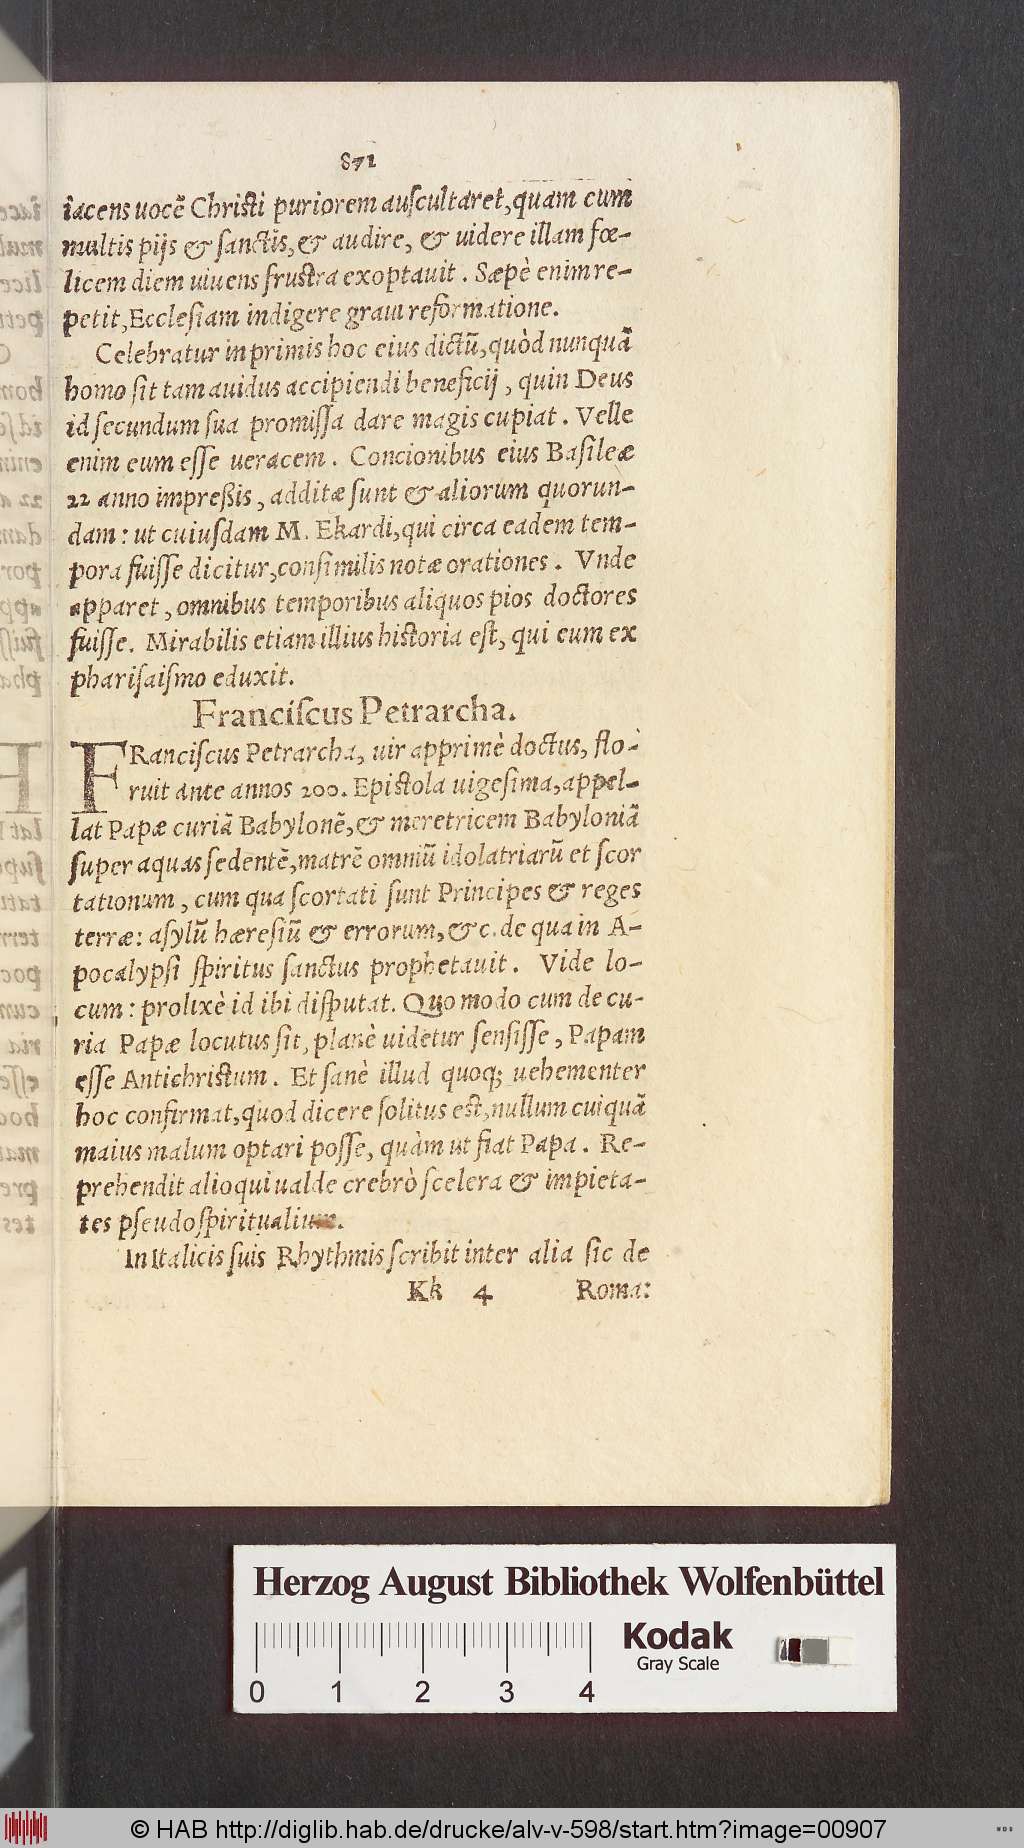 871
iacens uocẽ Christi puriorem auſcultaret, quam cum
multis pijs & ſanctis, & audire, & uidere illam fœ-
licem diem uiuens fruſtra exoptauit. Sæpè enim re-
petit, Eccleſiam indigere graui reformatione.
Celebratur inprimis hoc eius dictũ, quòd nunquã
homo ſit tam auidus accipiendi beneficij, quin Deus
id ſecundum ſua promiſſa dare magis cupiat. Velle
enim eum eſſe ueracem. Concionibus eius Baſileæ
22 anno impreßis, additæ ſunt & aliorum quorun-
dam: ut cuiuſdam M. Ekardi, qui circa eadem tem-
pora fuiſſe dicitur, conſimilis notæ orationes. Vnde
apparet, omnibus temporibus aliquos pios doctores
fuiſſe. Mirabilis etiam illius hiſtoria eſt, qui eum ex
phariſaiſmo eduxit.
Franciſcus Petrarcha.
FRanciſcus Petrarcha, uir apprimè doctus, flo-
ruit ante annos 200. Epiſtola uigeſima, appel-
lat Papæ curiã Babylonẽ, & meretricem Babyloniã
ſuper aquas ſedentẽ, matrẽ omniũ idolatriarũ et ſcor
tationum, cum qua ſcortati ſunt Principes & reges
terræ: aſylũ hæreſiũ & errorum, &c. de qua in A-
pocalypſi ſpiritus ſanctus prophetauit. Vide lo-
cum: prolixè id ibi diſputat. Quo modo cum de cu-
ria Papæ locutus ſit, planè uidetur ſenſiſſe, Papam
eſſe Antichriſtum. Et ſanè illud quoq; uehementer
hoc confirmat, quod dicere ſolitus eſt, nullum cuiquã
maius malum optari poſſe, quàm ut fiat Papa. Re-
prehendit alioqui ualde crebrò ſcelera & impieta-
tes pſeudoſpiritualium.
In Italicis ſuis Rhythmis ſcribit inter alia ſic de
Kk 4 Roma:
Herzog August Bibliothek Wolfenbüttel
Kodak
Gray Scale
0 1 2 3 4
© HAB http://diglib.hab.de/drucke/alv-v-598/start.htm?image=00907